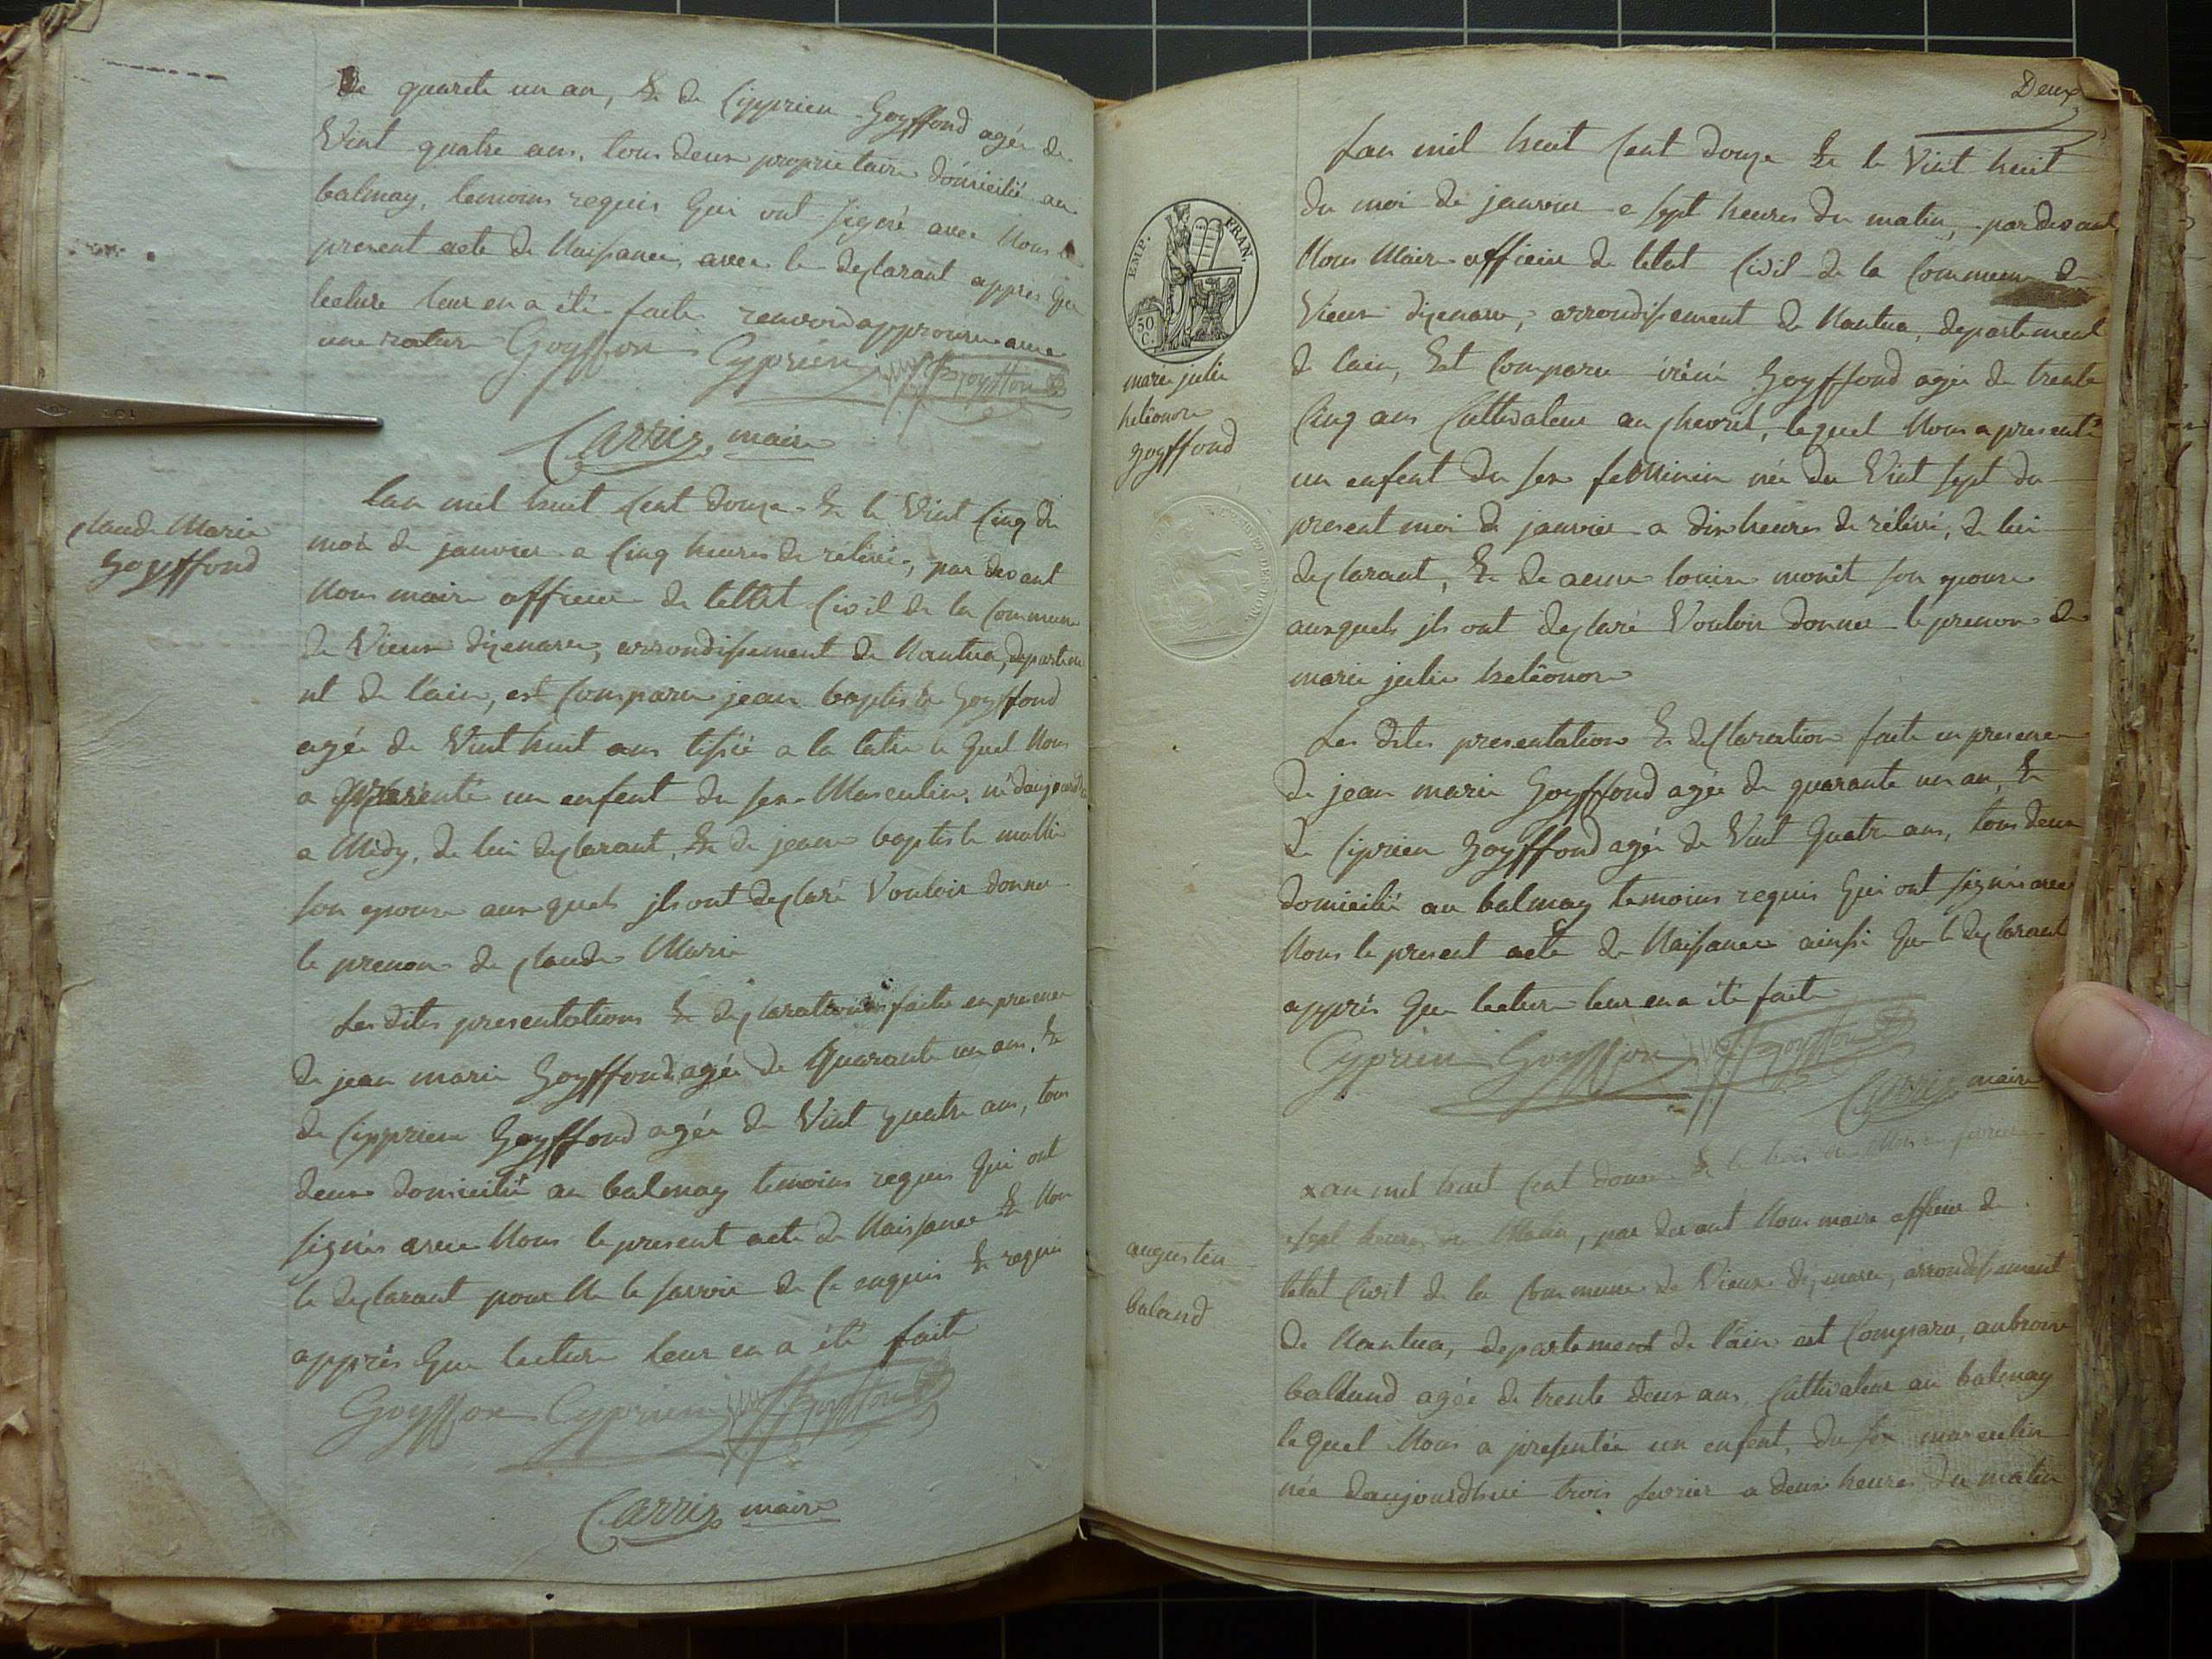 De quarente un an, & de Cipprien Goyffond agée de
Vint quatre ans, tous deux proprietaire domicilié au
balmay, temoins requis Qui ont signé avec Nous le
present acte de Naissance, avec le declarant appres Que
lecture leur en a été faite renvoid approuvé avec
une rature Goyffon Cyprien Goyffon
Carrier maire
Claude Marie
Goyffond
Lan mil huit Cent douze & le Vint Cinq du
mois de janvier a Cinq heures de rélévé, par devant
Nous maire officier de lettat Civil de la Commune
de Vieux dizenave, arrondissement de Nantua, departeme
nt de l'ain, est Comparu jean baptiste Goyffond
agée de Vint huit ans a la le Quel Nous
a presenté un enfent du sex Masculin, né daujourdh
a Midy, de lui declarant, & de jeane baptiste
son epouse aux quels jls ont declaré Vouloir donner
le prenom de Claude Marie
Les dites presentations & declarations faite en presence
de jean marie Goyffond agée de Quarante un ans, &
de Cipprien Goyffond agée de Vint quatre ans, tous
deux domicilié au balmay temoins requis Qui ont
signés avec Nous le present acte de Naissance & Non
le declarant pour Ne le savoir de Ce enquis & requis
apprés Que lecture leur en a été faite
Goyffon Cyprien Goyffon
Carrier maire
Deux
EMP. FRAN.
50 C.
marie julie
heléonore
Goyffond
Lan mil huit Cent douze & le Vint huit
du moi de janvier a sept heures du matin, par devant
Nous Maire officier de letat Civil de la Commune de
Vieux dizenave, arrondissement de Nantua, departement
de lain, Est Comparu iréné Goyffond agée de trente
Cinq ans Cultivateur au Chevril, lequel Nous a presenté
un enfent du sex feminin née du Vint sept du
present moi de janvier a dix heures de rélévé, de lui
declarant, & de anne louise monet son epouse
auxquels jls ont declaré Vouloir donner le prenom de
marie julie heléonore
Les dites presentation & declaration faite en presence
de jean marie Goyffond agée de quarante un an, &
de Ciprien Goyffond agée de Vint Quatre ans, tous deux
domicilié au balmay temoins requis Qui ont signés avec
Nous le present acte de Naissance ainsi Que le declarant
apprés Que lecture leur en a été faite
Cyprien Goyffon Goyffon
Carrier maire
augustin
baland
Lan mil huit Cent douze & le trois du Mois fevrier
a sept heures du Matin, par devant Nous maire officier de
letat Civil de la Commune de Vieux dizenave, arrondissement
de Nantua, departement de l'ain est Comparu, anbroise
balland agée de trente deux ans Cultivateur au balmay
lequel Nous a presentée un enfent, du sex masculin
née daujourdhui trois fevrier a deux heures du matin